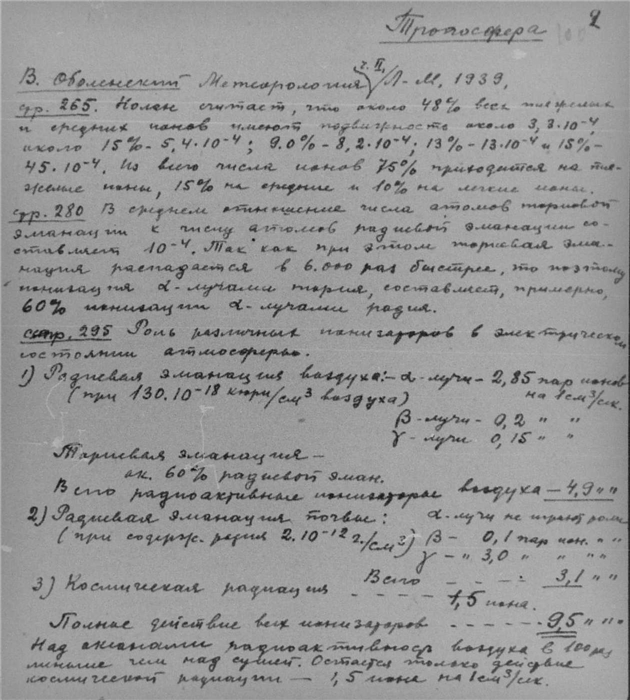 Тропосфера 9
В. Оболенский Метеорология ч. II, Л-М, 1939,
стр. 265. Нолан считает, что около 48% всех тяжелых
и средних ионов имеют подвижность около 3,3·10⁻⁴,
около 15% - 5,4·10⁻⁴; 9.0% - 8,2·10⁻⁴; 13% - 13·10⁻⁴ и 15% -
45·10⁻⁴. Из всего числа ионов 75% приходится на тя-
желые ионы, 15% на средние и 10% на легкие ионы.
стр. 280 В среднем отношение числа атомов ториевой
эманации к числу атомов радиевой эманации со-
ставляет 10⁻⁴. Так как при этом ториевая эма-
нация распадается в 6.000 раз быстрее, то поэтому
ионизация α-лучами тория, составляет, примерно,
60% ионизации α-лучами радия.
стр. 295 Роль различных ионизаторов в электрическом
состоянии атмосферы.
1) Радиевая эманация воздуха: - α-лучи - 2,85 пар ионов
(при 130.10⁻¹⁸ кюри/см³ воздуха) на 1см³/сек.
β-лучи - 0,2 " "
γ-лучи 0,15 " "
Ториевая эманация -
ок. 60% радиевой эман.
Всего радиоактивные ионизаторы воздуха - 4,9 " "
2) Радиевая эманация почвы: α-лучи не играют роли
(при содерж. радия 2.10⁻¹² г./см³) β - 0,1 пар ион. " "
γ - " 3,0 " " " "
Всего - - - - : 3,1 " "
3) Космическая радиация - - - - - - 1,5 иона.
Полное действие всех ионизаторов - - - - - - 9,5 " " "
Над океанами радиоактивность воздуха в 100 раз
меньше чем над сушей. Остается только действие
космической радиации - 1,5 иона на 1см³/сек.